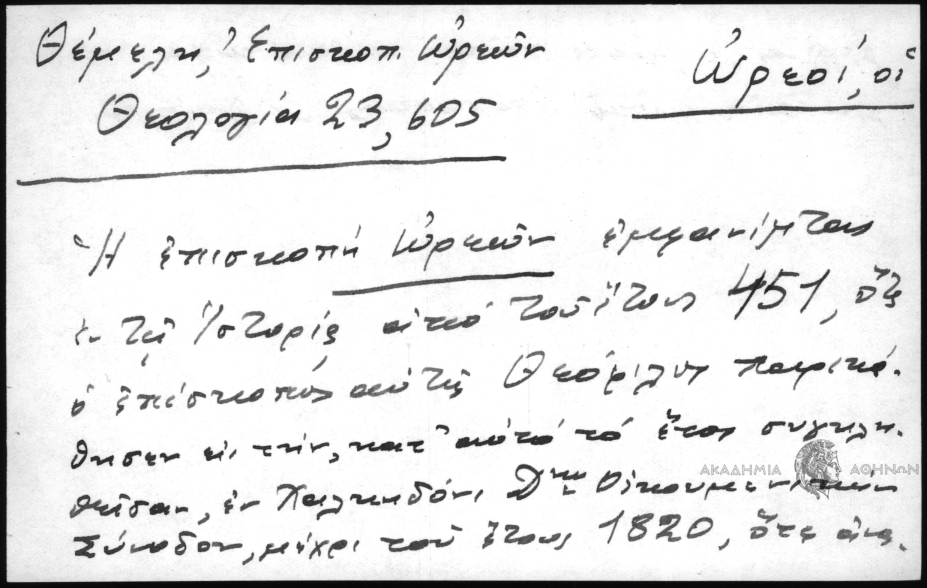 Θέμελη, Ἐπισκοπ. Ὠρεῶν
Ὠρεοί, οἱ
Θεολογία 23, 605
Ἡ ἐπισκοπή Ὠρεῶν ἐμφανίζεται
ἐν τῇ Ἱστορίᾳ ἀπό τοῦ ἔτους 451, ὅτε
ὁ ἐπίσκοπος αὐτῆς Θεόφιλος παρεκά-
θησεν εἰς τήν, κατ' αὐτό τό ἔτος συγκλη-
θεῖσαν, ἐν Χαλκηδόνι Δην Οἰκουμενικήν
Σύνοδον, μέχρι τοῦ ἔτους 1820, ὅτε ἀνα-
ΑΚΑΔΗΜΙΑ ΑΘΗΝΩΝ